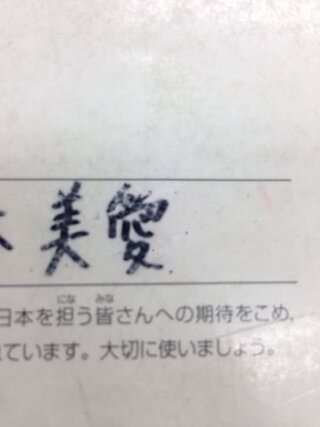 美愛
日本を担う皆さんへの期待をこめ,
ています。大切に使いましょう。